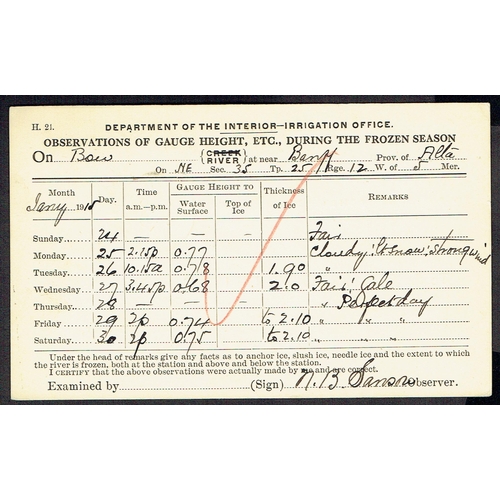 H. 21. DEPARTMENT OF THE INTERIOR—IRRIGATION OFFICE.
OBSERVATIONS OF GAUGE HEIGHT, ETC., DURING THE FROZEN SEASON
On Bow (CREEK RIVER) at near Banff Prov. of Alta
On NE Sec. 35 Tp. 25 Rge. 12 W. of 5 Mer.
Month Day. Time a.m.—p.m. GAUGE HEIGHT TO Water Surface Top of Ice Thickness of Ice REMARKS
Jany 1915
Sunday 24 — — Fair
Monday 25 2.15p 0.77 Cloudy: Lt snow: Strong wind
Tuesday 26 10.15a 0.78 1.90 "
Wednesday 27 3.45p 0.68 2.0 Fair: Gale
Thursday 28 — — " Perfect day
Friday 29 2p 0.74 to 2.10 " " "
Saturday 30 2p 0.75 to 2.10 " " "
Under the head of remarks give any facts as to anchor ice, slush ice, needle ice and the extent to which
the river is frozen, both at the station and above and below the station.
I CERTIFY that the above observations were actually made by me and are correct.
Examined by (Sign) N. B. Sanson Observer.